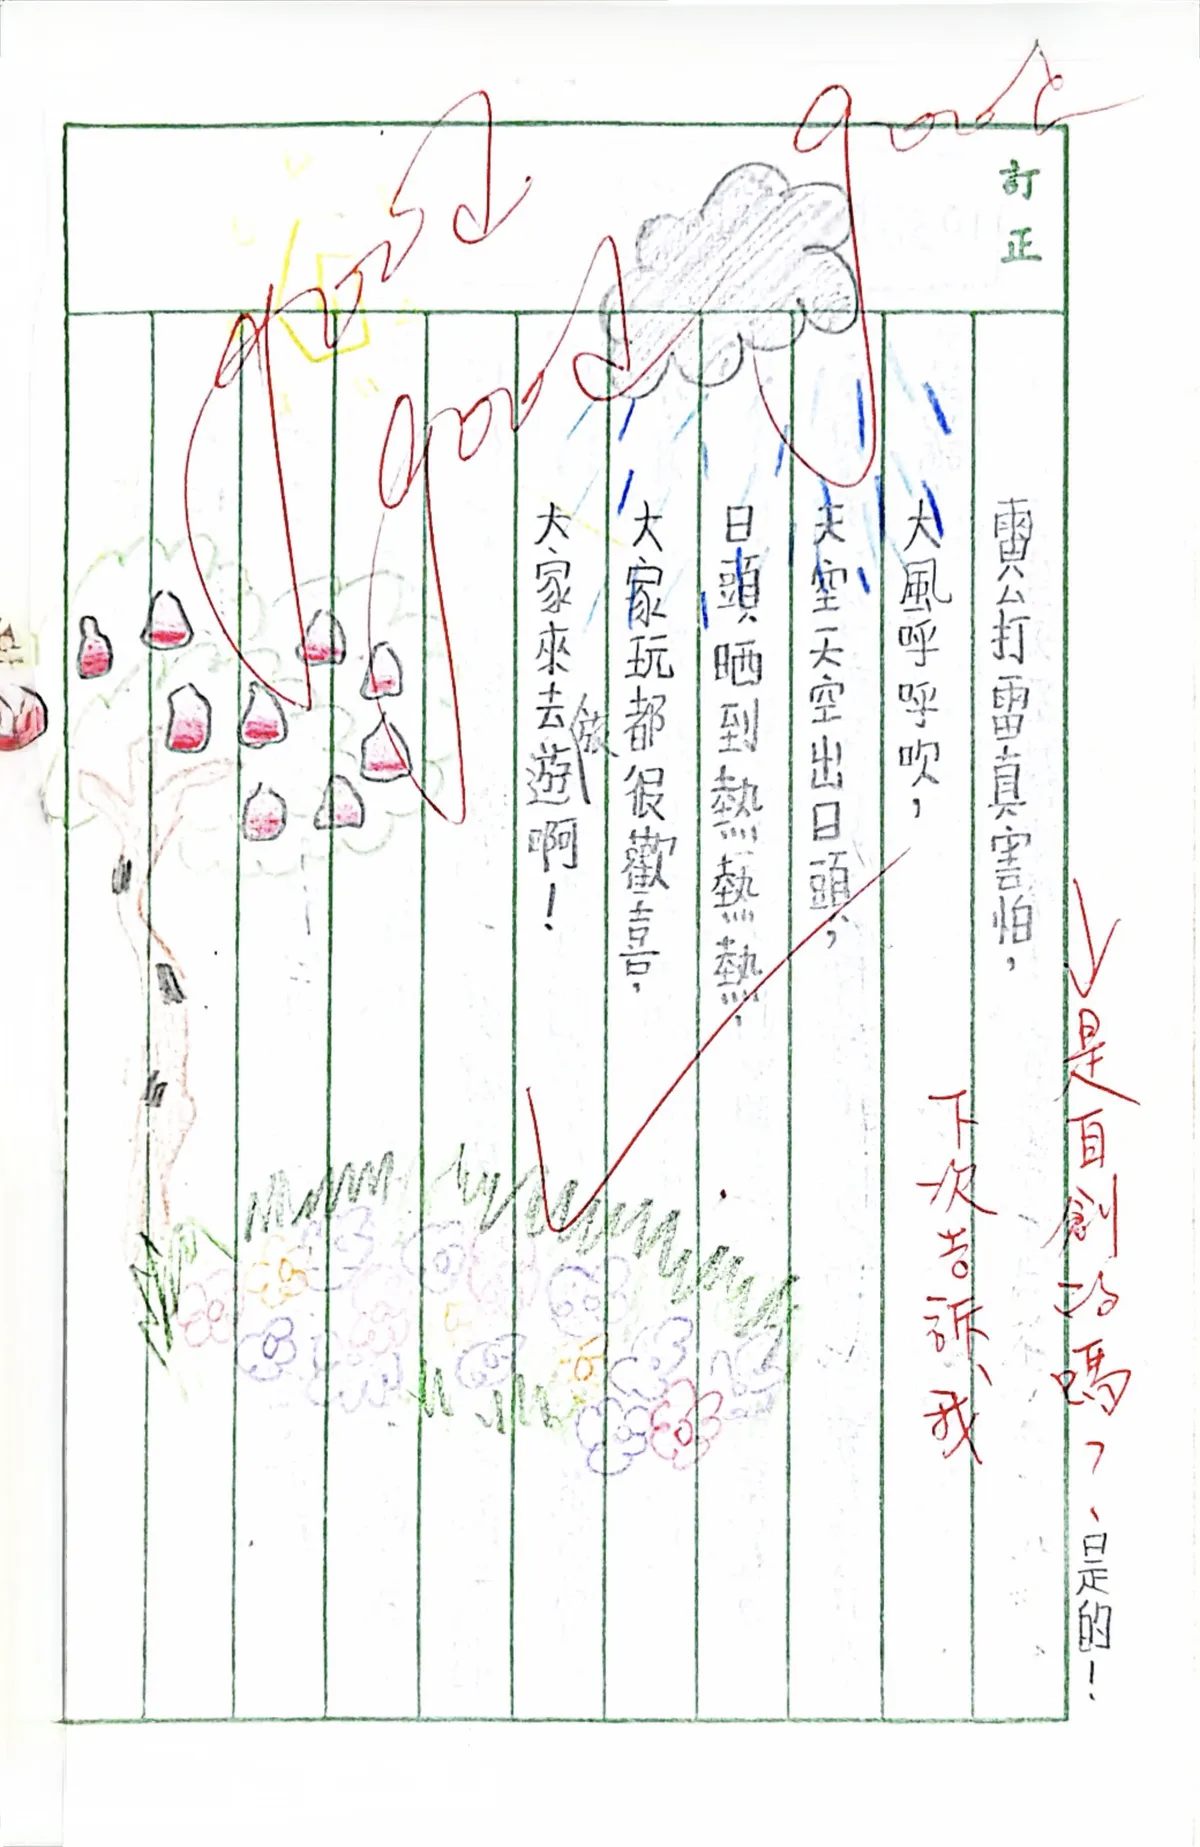 訂正
good
good
good
是自創的嗎？
是的！
雷公打雷真害怕，
大風呼呼吹，
下次告訴我
天空天空出日頭，
日頭晒到熱熱熱，
大家玩都很歡喜，
大家來去旅遊啊！